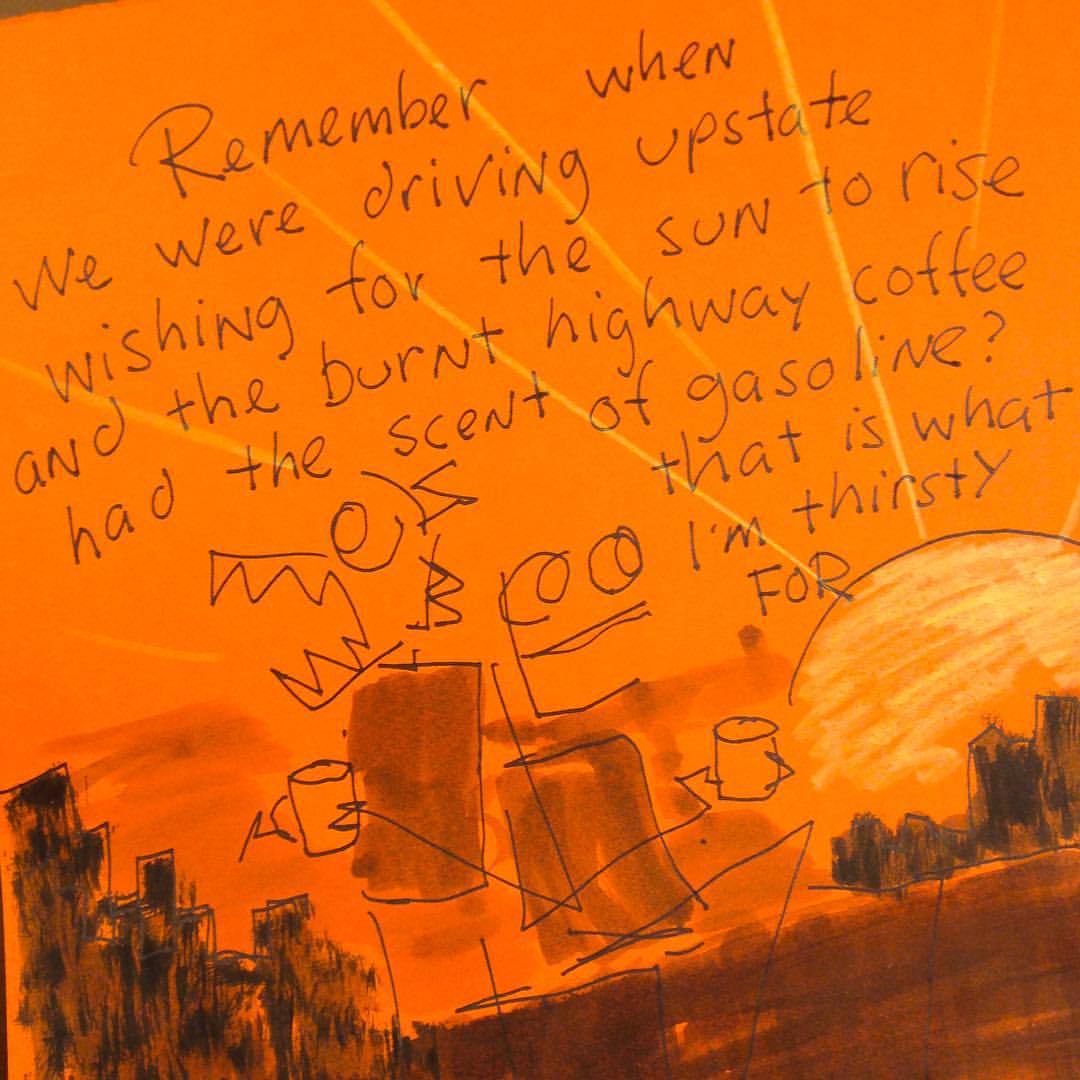 Remember when
we were driving upstate
wishing for the sun to rise
and the burnt highway coffee
had the scent of gasoline?
that is what
I'm thirsty
FOR